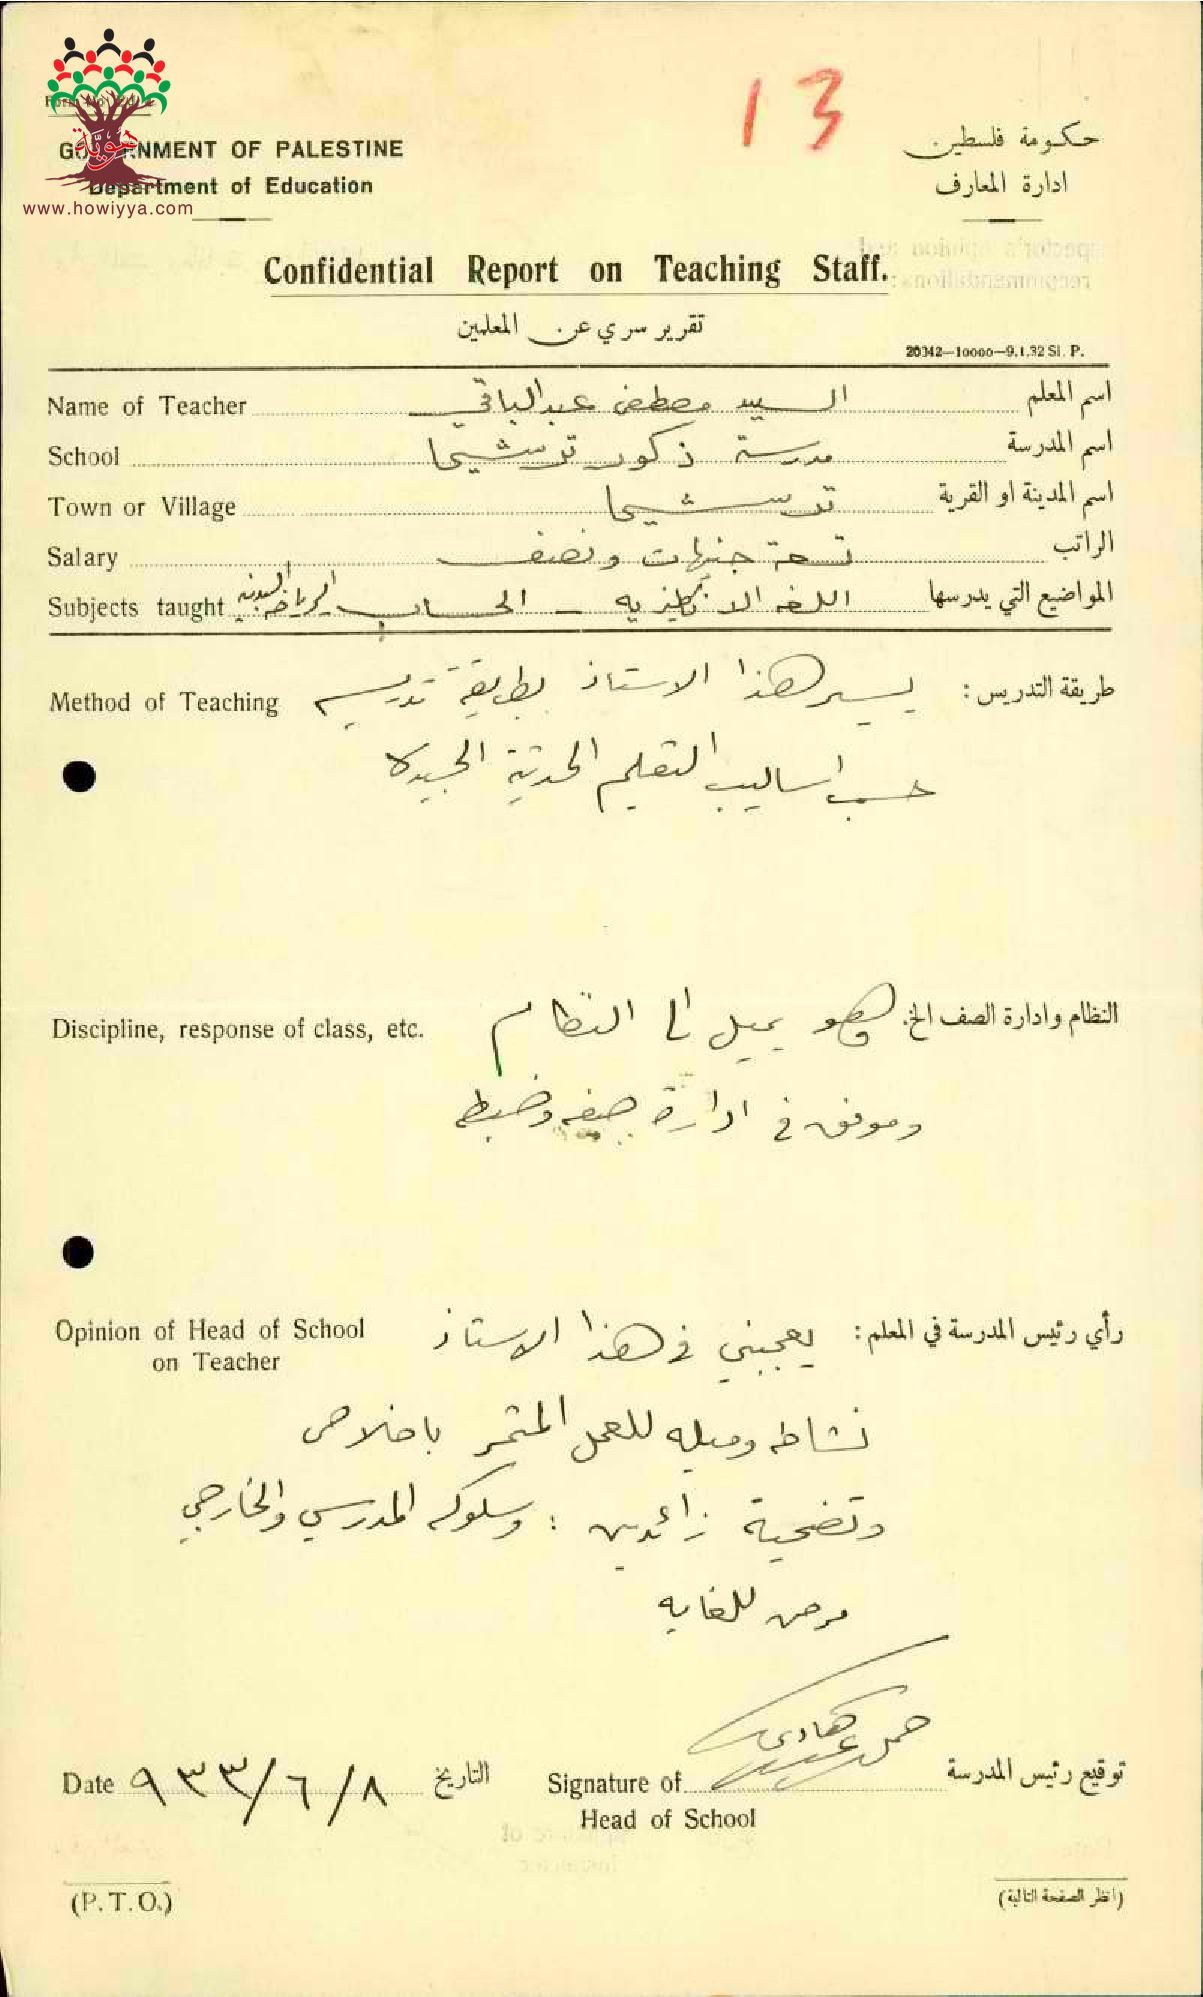 13
حكومة فلسطين
ادارة المعارف
GOVERNMENT OF PALESTINE
Department of Education
هويّة
www.howiyya.com
Confidential Report on Teaching Staff.
تقرير سري عن المعلمين
20342—10000—9.1.32 Sl. P.
Name of Teacher السيد مصطفى عبدالباقي اسم المعلم
School مدرسة ذكور ترشيحا اسم المدرسة
Town or Village ترشيحا اسم المدينة او القرية
Salary تسعة جنيهات ونصف الراتب
Subjects taught اللغه الانكليزيه - الحساب الرياضه البدنية المواضيع التي يدرسها
Method of Teaching يسير هذا الاستاذ بطريقة تدريسه طريقة التدريس :
حسب اساليب التعليم الحديثة الجيدة
Discipline, response of class, etc. وهو يميل الى النظام النظام وادارة الصف الخ.
وموفق في ادارة صفه وضبطه
Opinion of Head of School on Teacher يعجبني في هذا الاستاذ رأي رئيس المدرسة في المعلم :
نشاطه وميله للعمل المثمر باخلاص
وتضحية زائدين : وسلوكه المدرسي والخارجي
مرض للغايه
Date ٩٣٣/٦/٨ التاريخ Signature of Head of School توقيع رئيس المدرسة
(P.T.O.) (انظر الصفحة التالية)